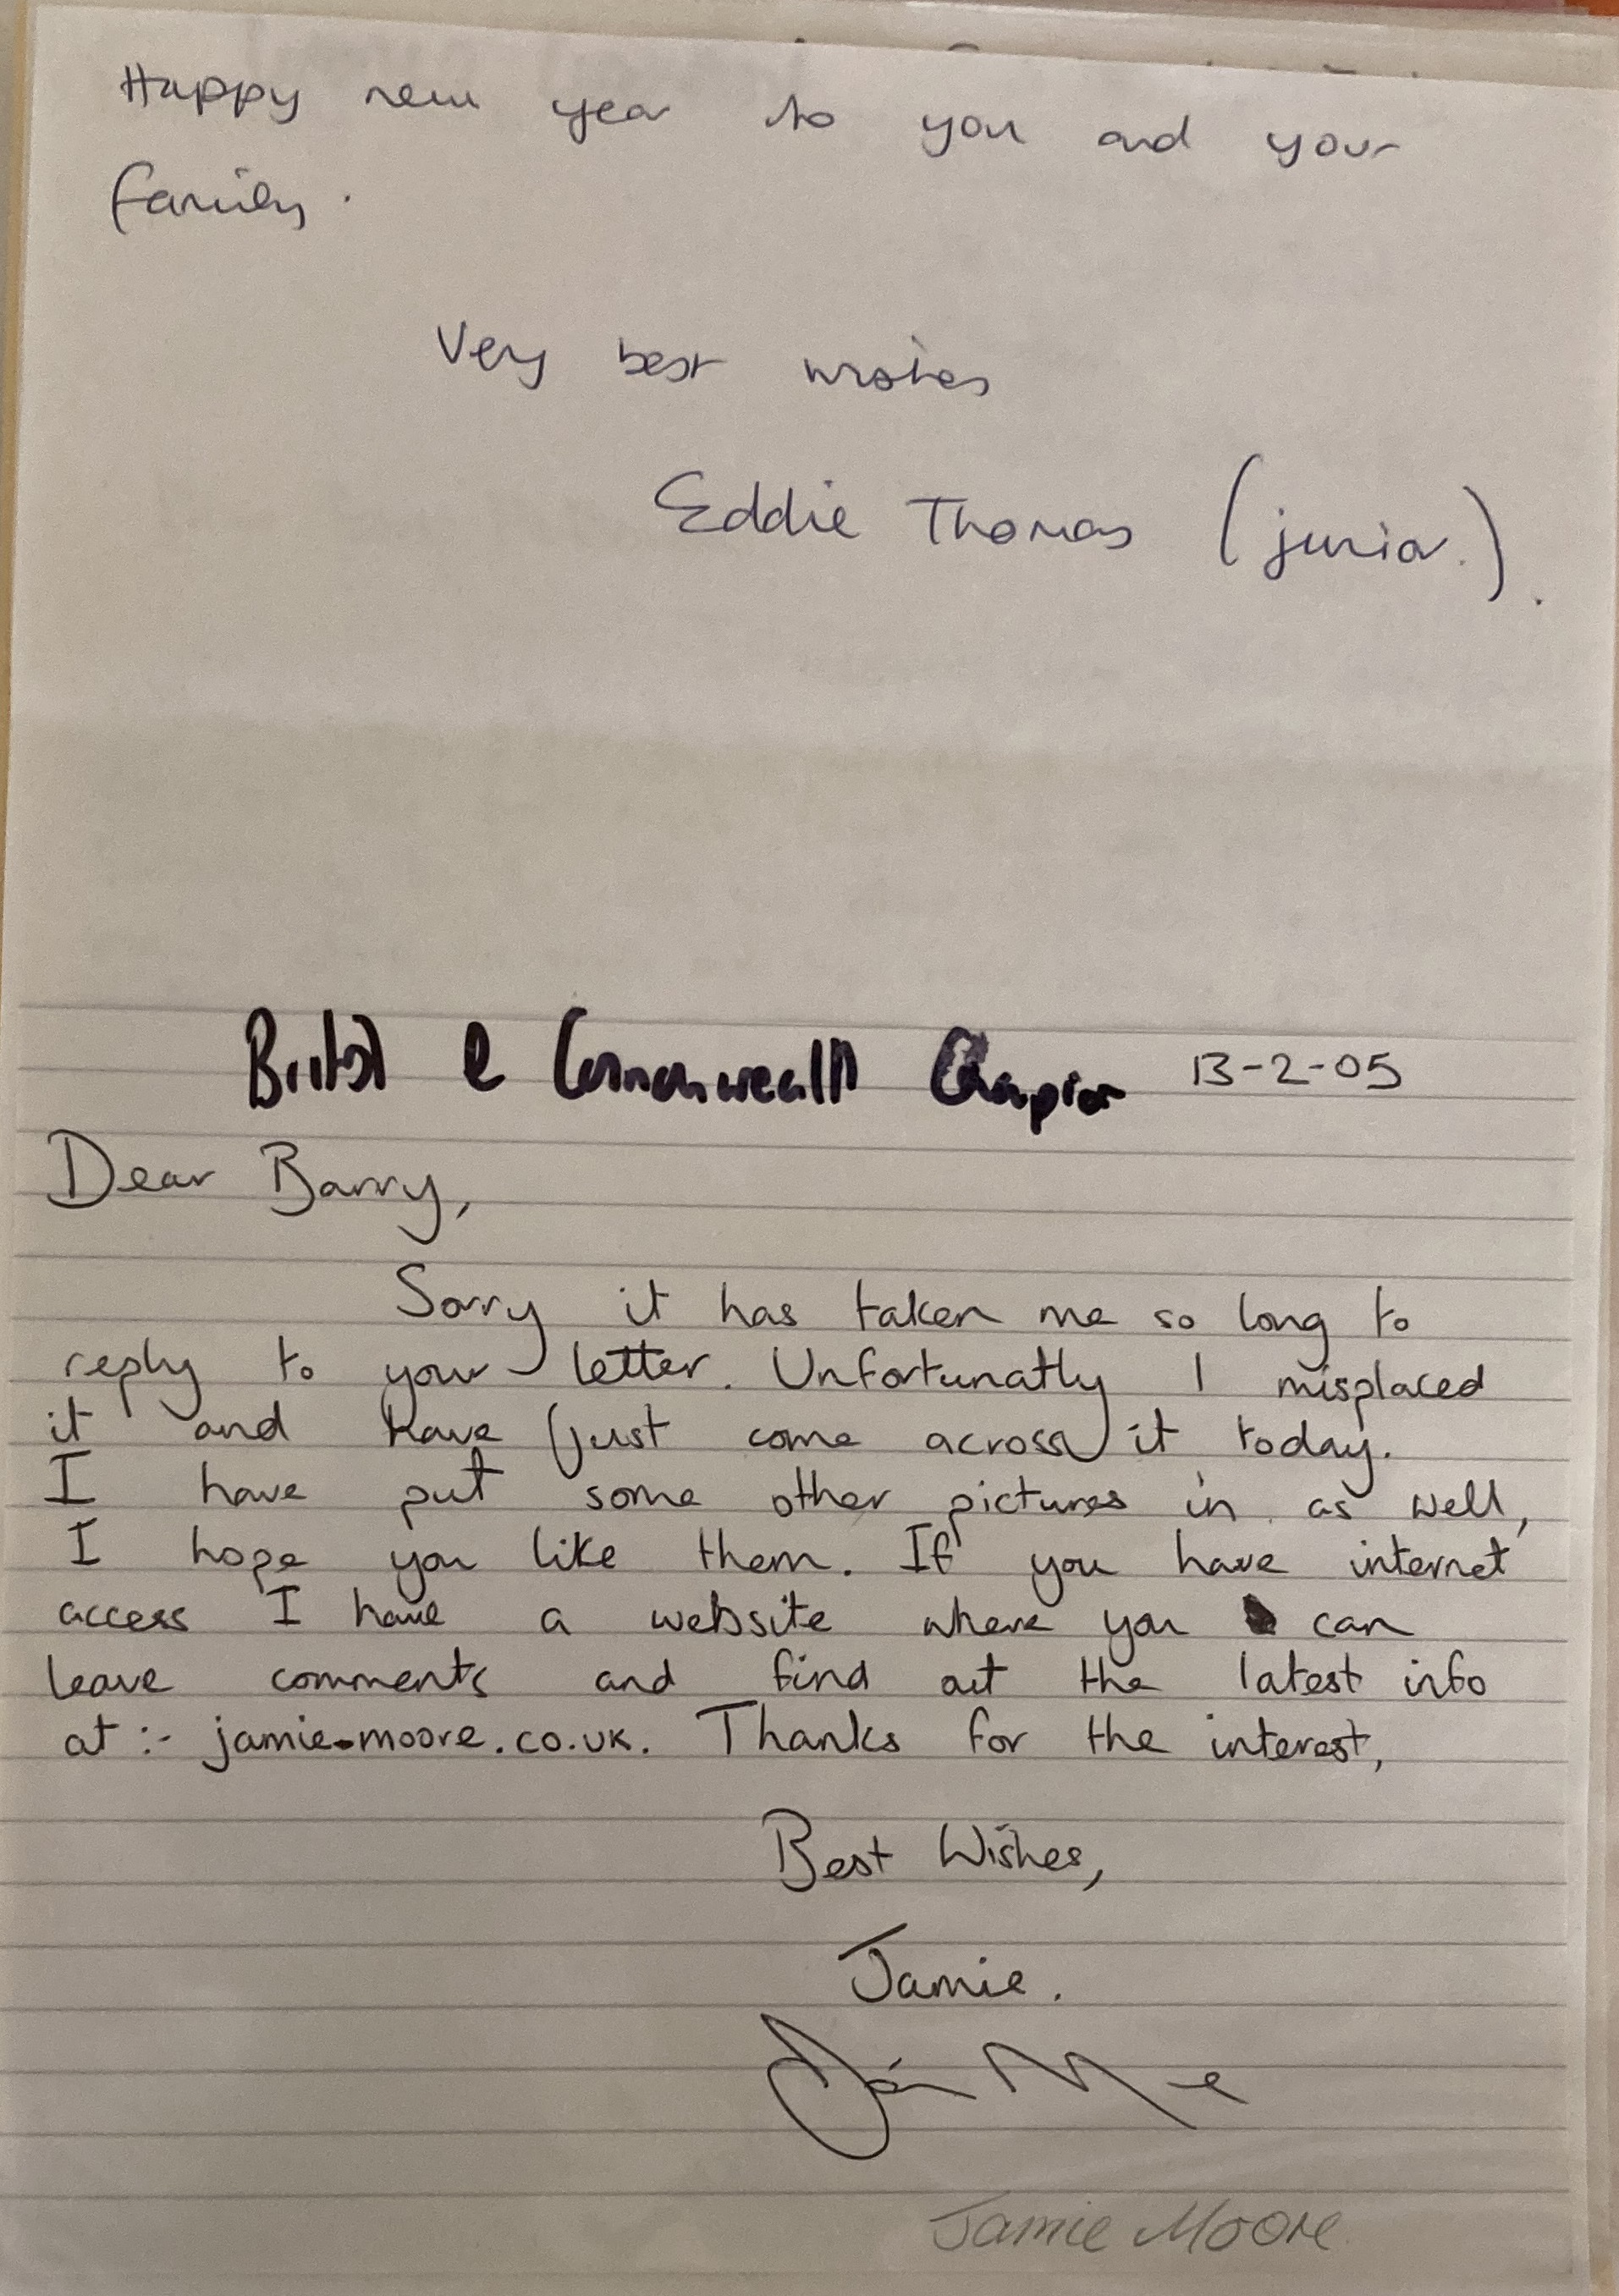 Happy new year to you and your
family.
Very best wishes
Eddie Thomas (junior.).
British & Commonwealth Champion 13-2-05
Dear Barry,
Sorry it has taken me so long to
reply to your letter. Unfortunatly I misplaced
it and have just come across it today.
I have put some other pictures in as well,
I hope you like them. If you have internet
access I have a website where you can
leave comments and find out the latest info
at :- jamie-moore.co.uk. Thanks for the interest,
Best Wishes,
Jamie.
Jamie Moore